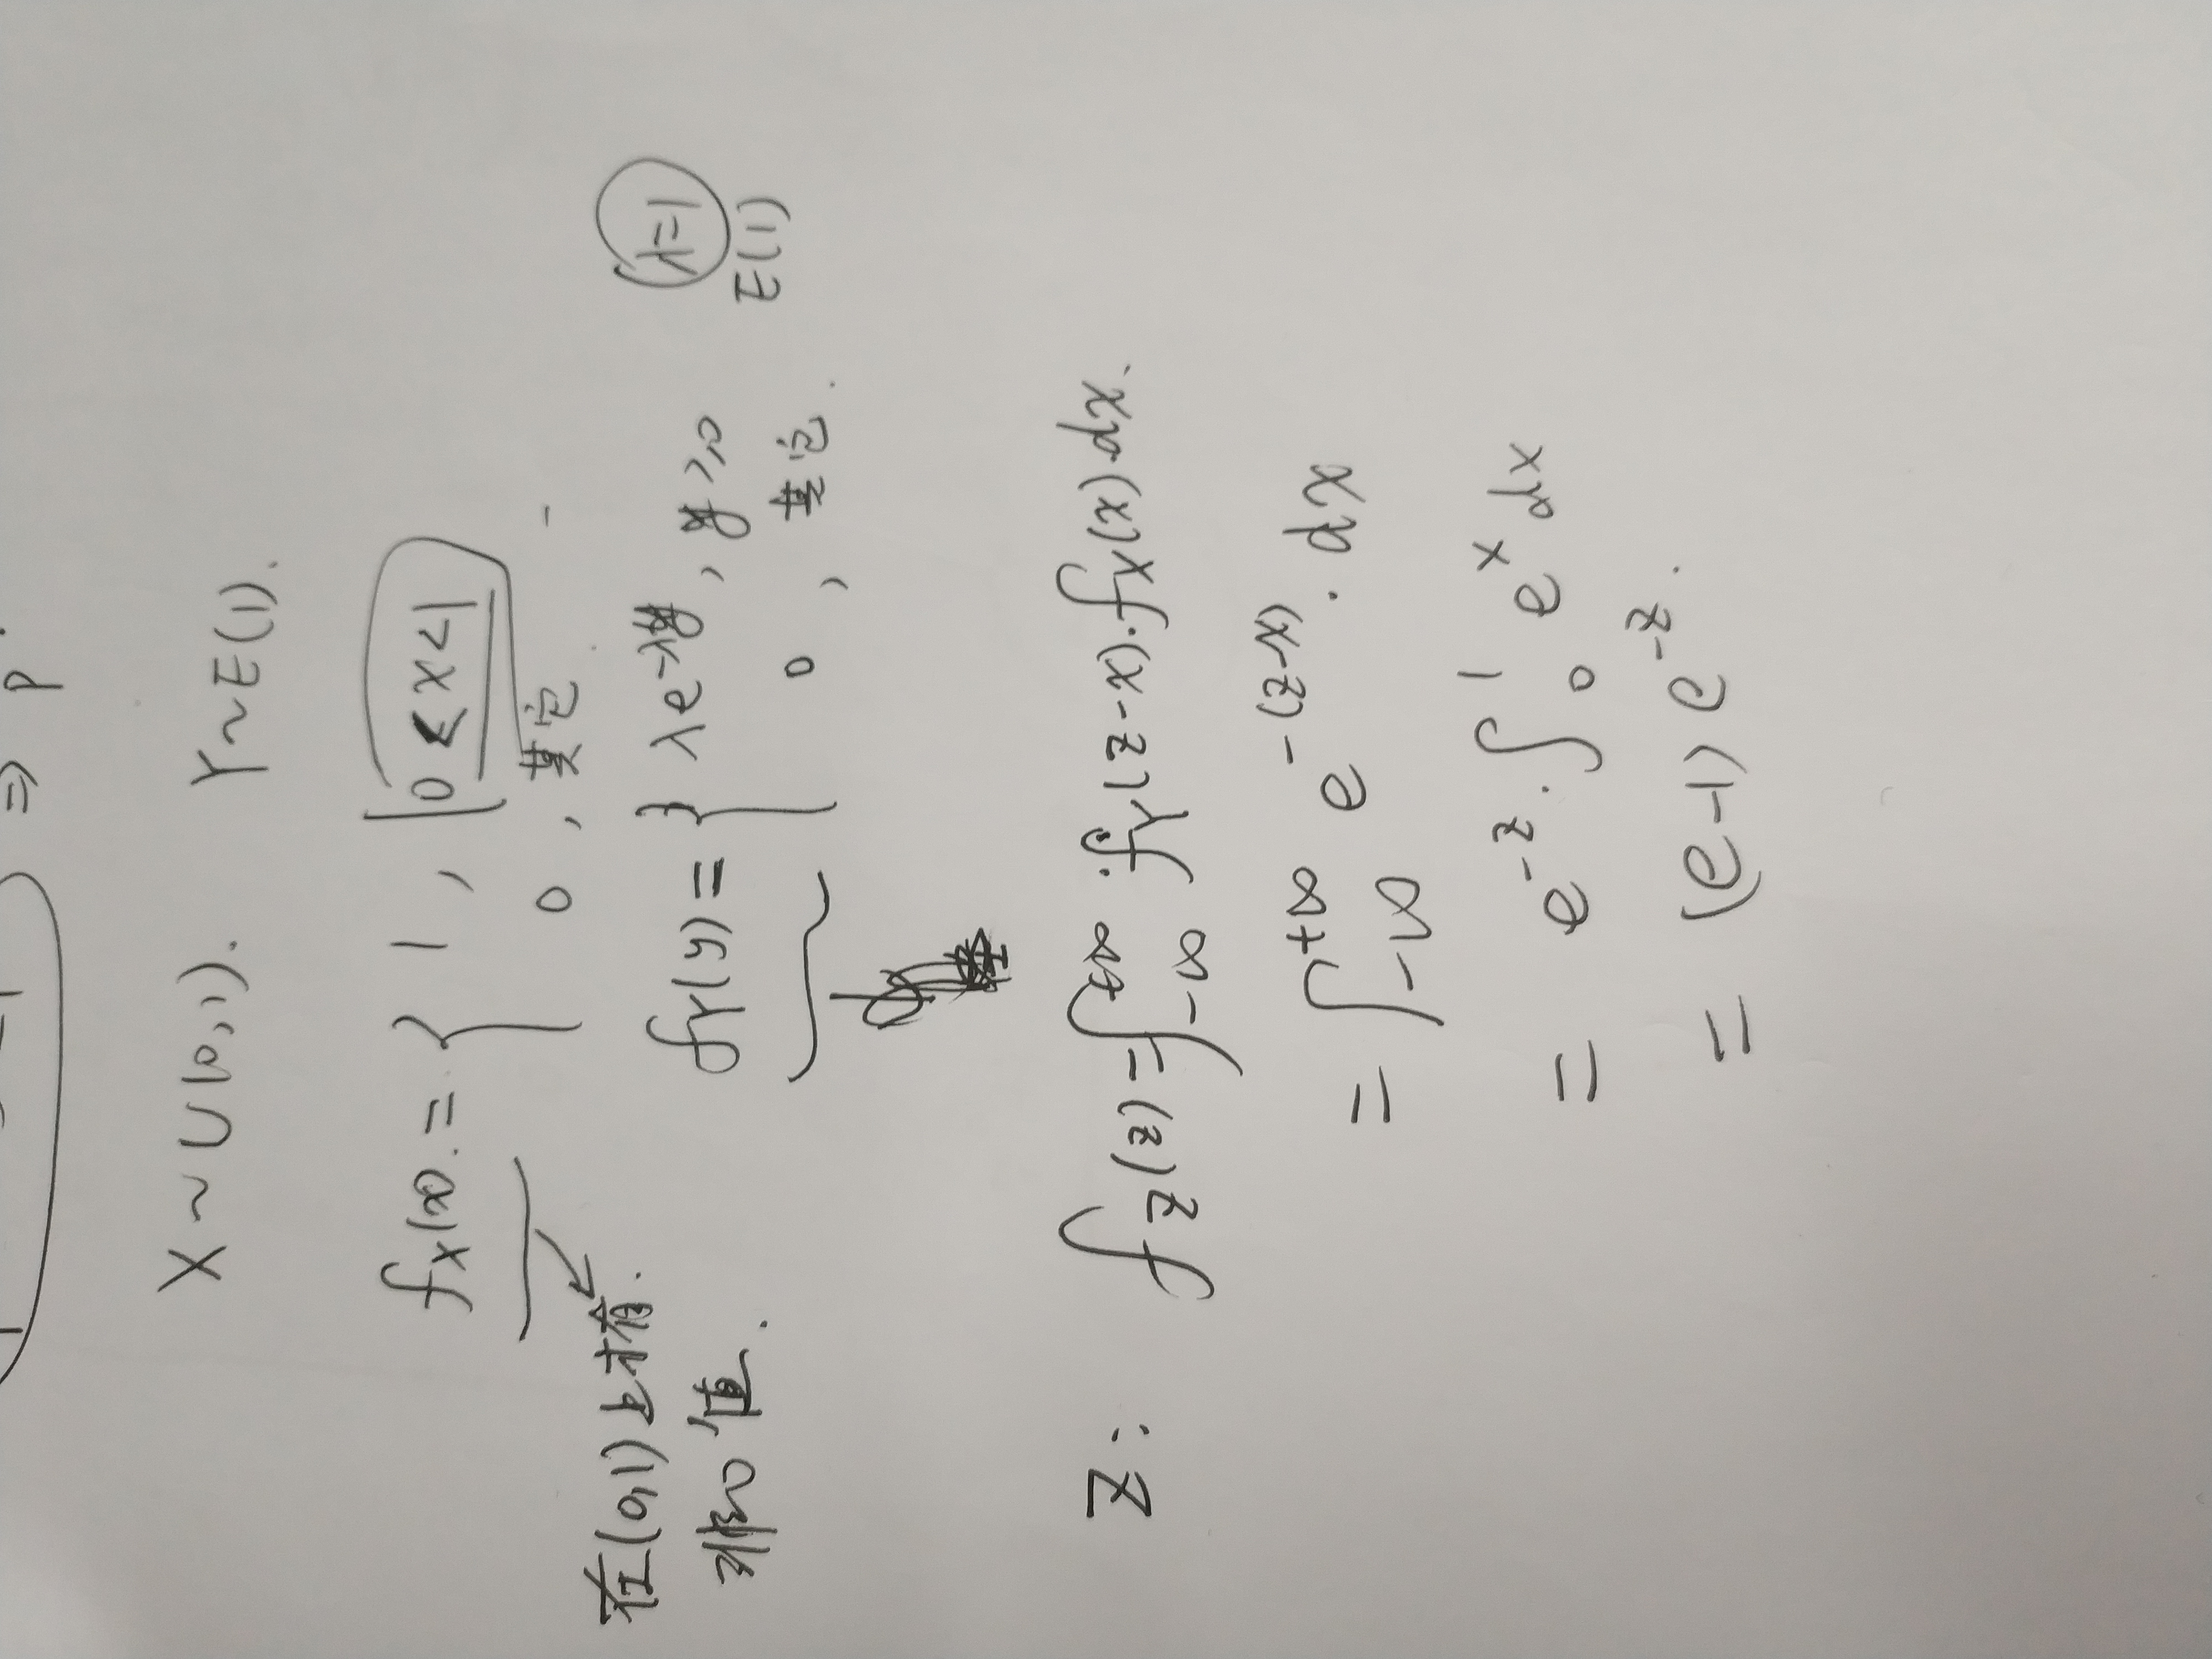 ⇒ p.
X ~ U(0,1). Y~E(1).
fX(x) = { 1, 0≤x<1
0, 其它
在(0,1)上才有
非0值.
fY(y) = { λe^{-λy}, y≥0
0, 其它.
(λ=1)
E(1)
Z: fZ(z) = ∫_{-∞}^{+∞} fY(z-x)·fX(x)dx.
= ∫_{-∞}^{+∞} e^{-(z-x)}·dx
= e^{-z}·∫_0^1 e^x dx
= (e-1)e^{-z}.